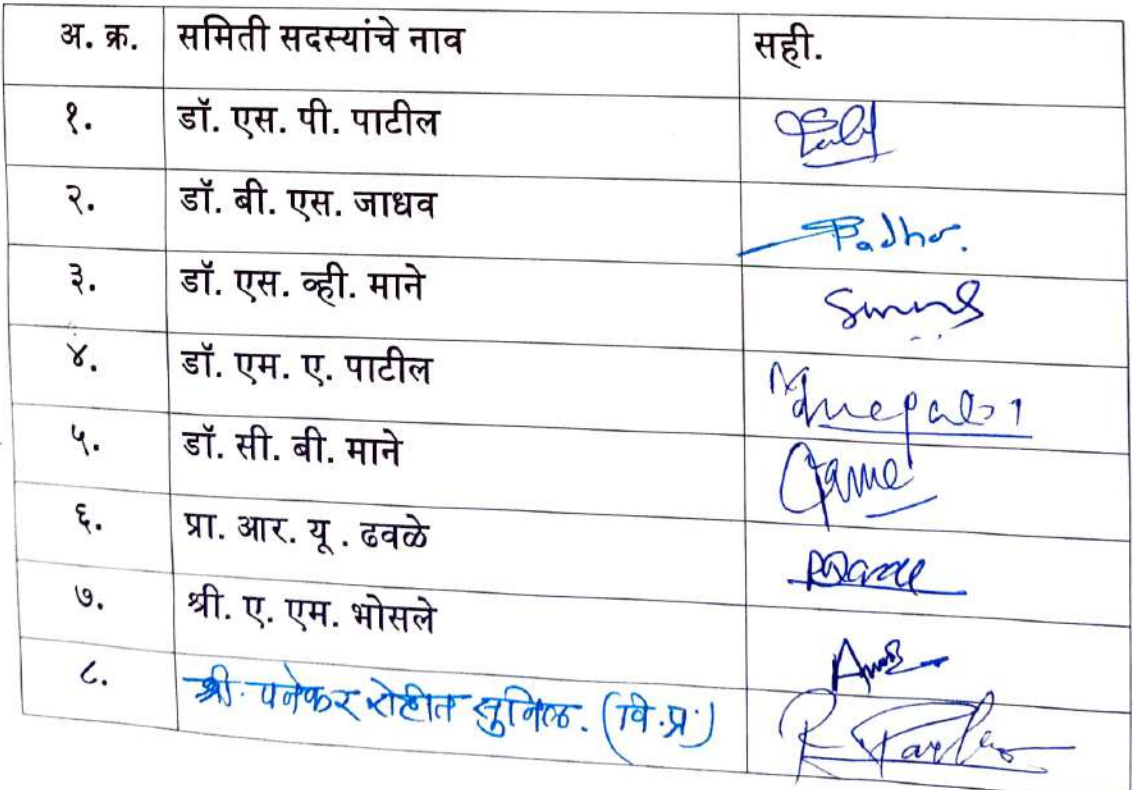 अ. क्र. समिती सदस्यांचे नाव सही.
१. डॉ. एस. पी. पाटील
२. डॉ. बी. एस. जाधव
३. डॉ. एस. व्ही. माने
४. डॉ. एम. ए. पाटील
५. डॉ. सी. बी. माने
६. प्रा. आर. यू . ढवळे
७. श्री. ए. एम. भोसले
८. श्री. रोहीत सुनिल. (वि.प्र.)